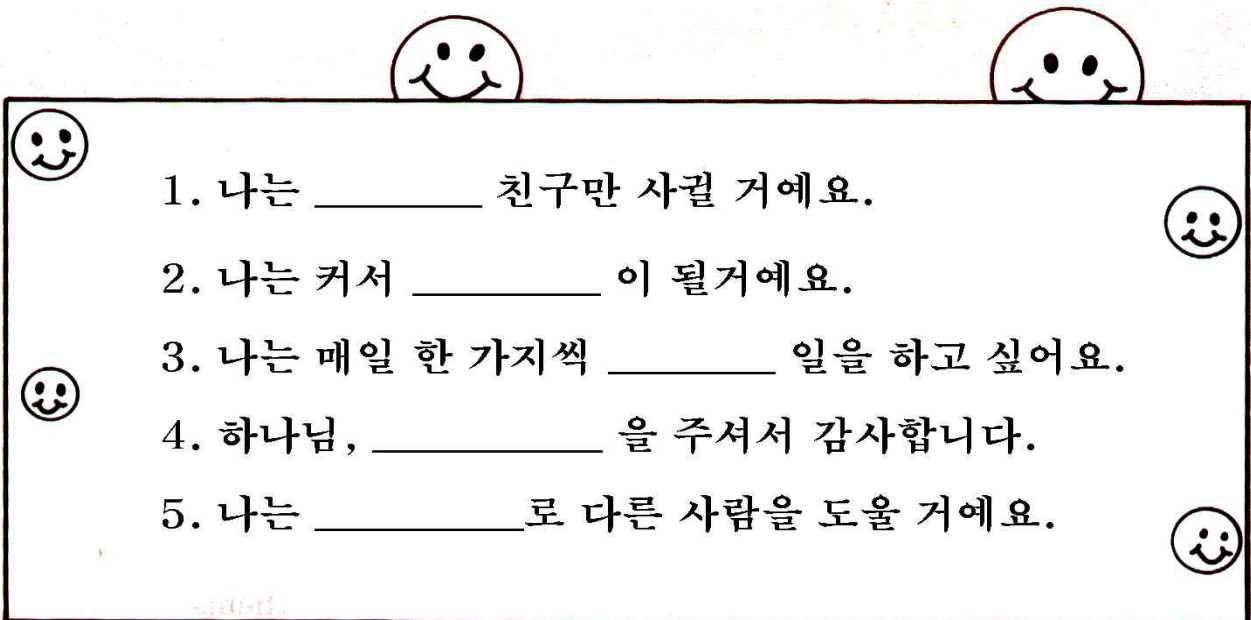 1. 나는 ________ 친구만 사귈 거예요.
2. 나는 커서 _________ 이 될거예요.
3. 나는 매일 한 가지씩 ________ 일을 하고 싶어요.
4. 하나님, ___________ 을 주셔서 감사합니다.
5. 나는 __________로 다른 사람을 도울 거예요.